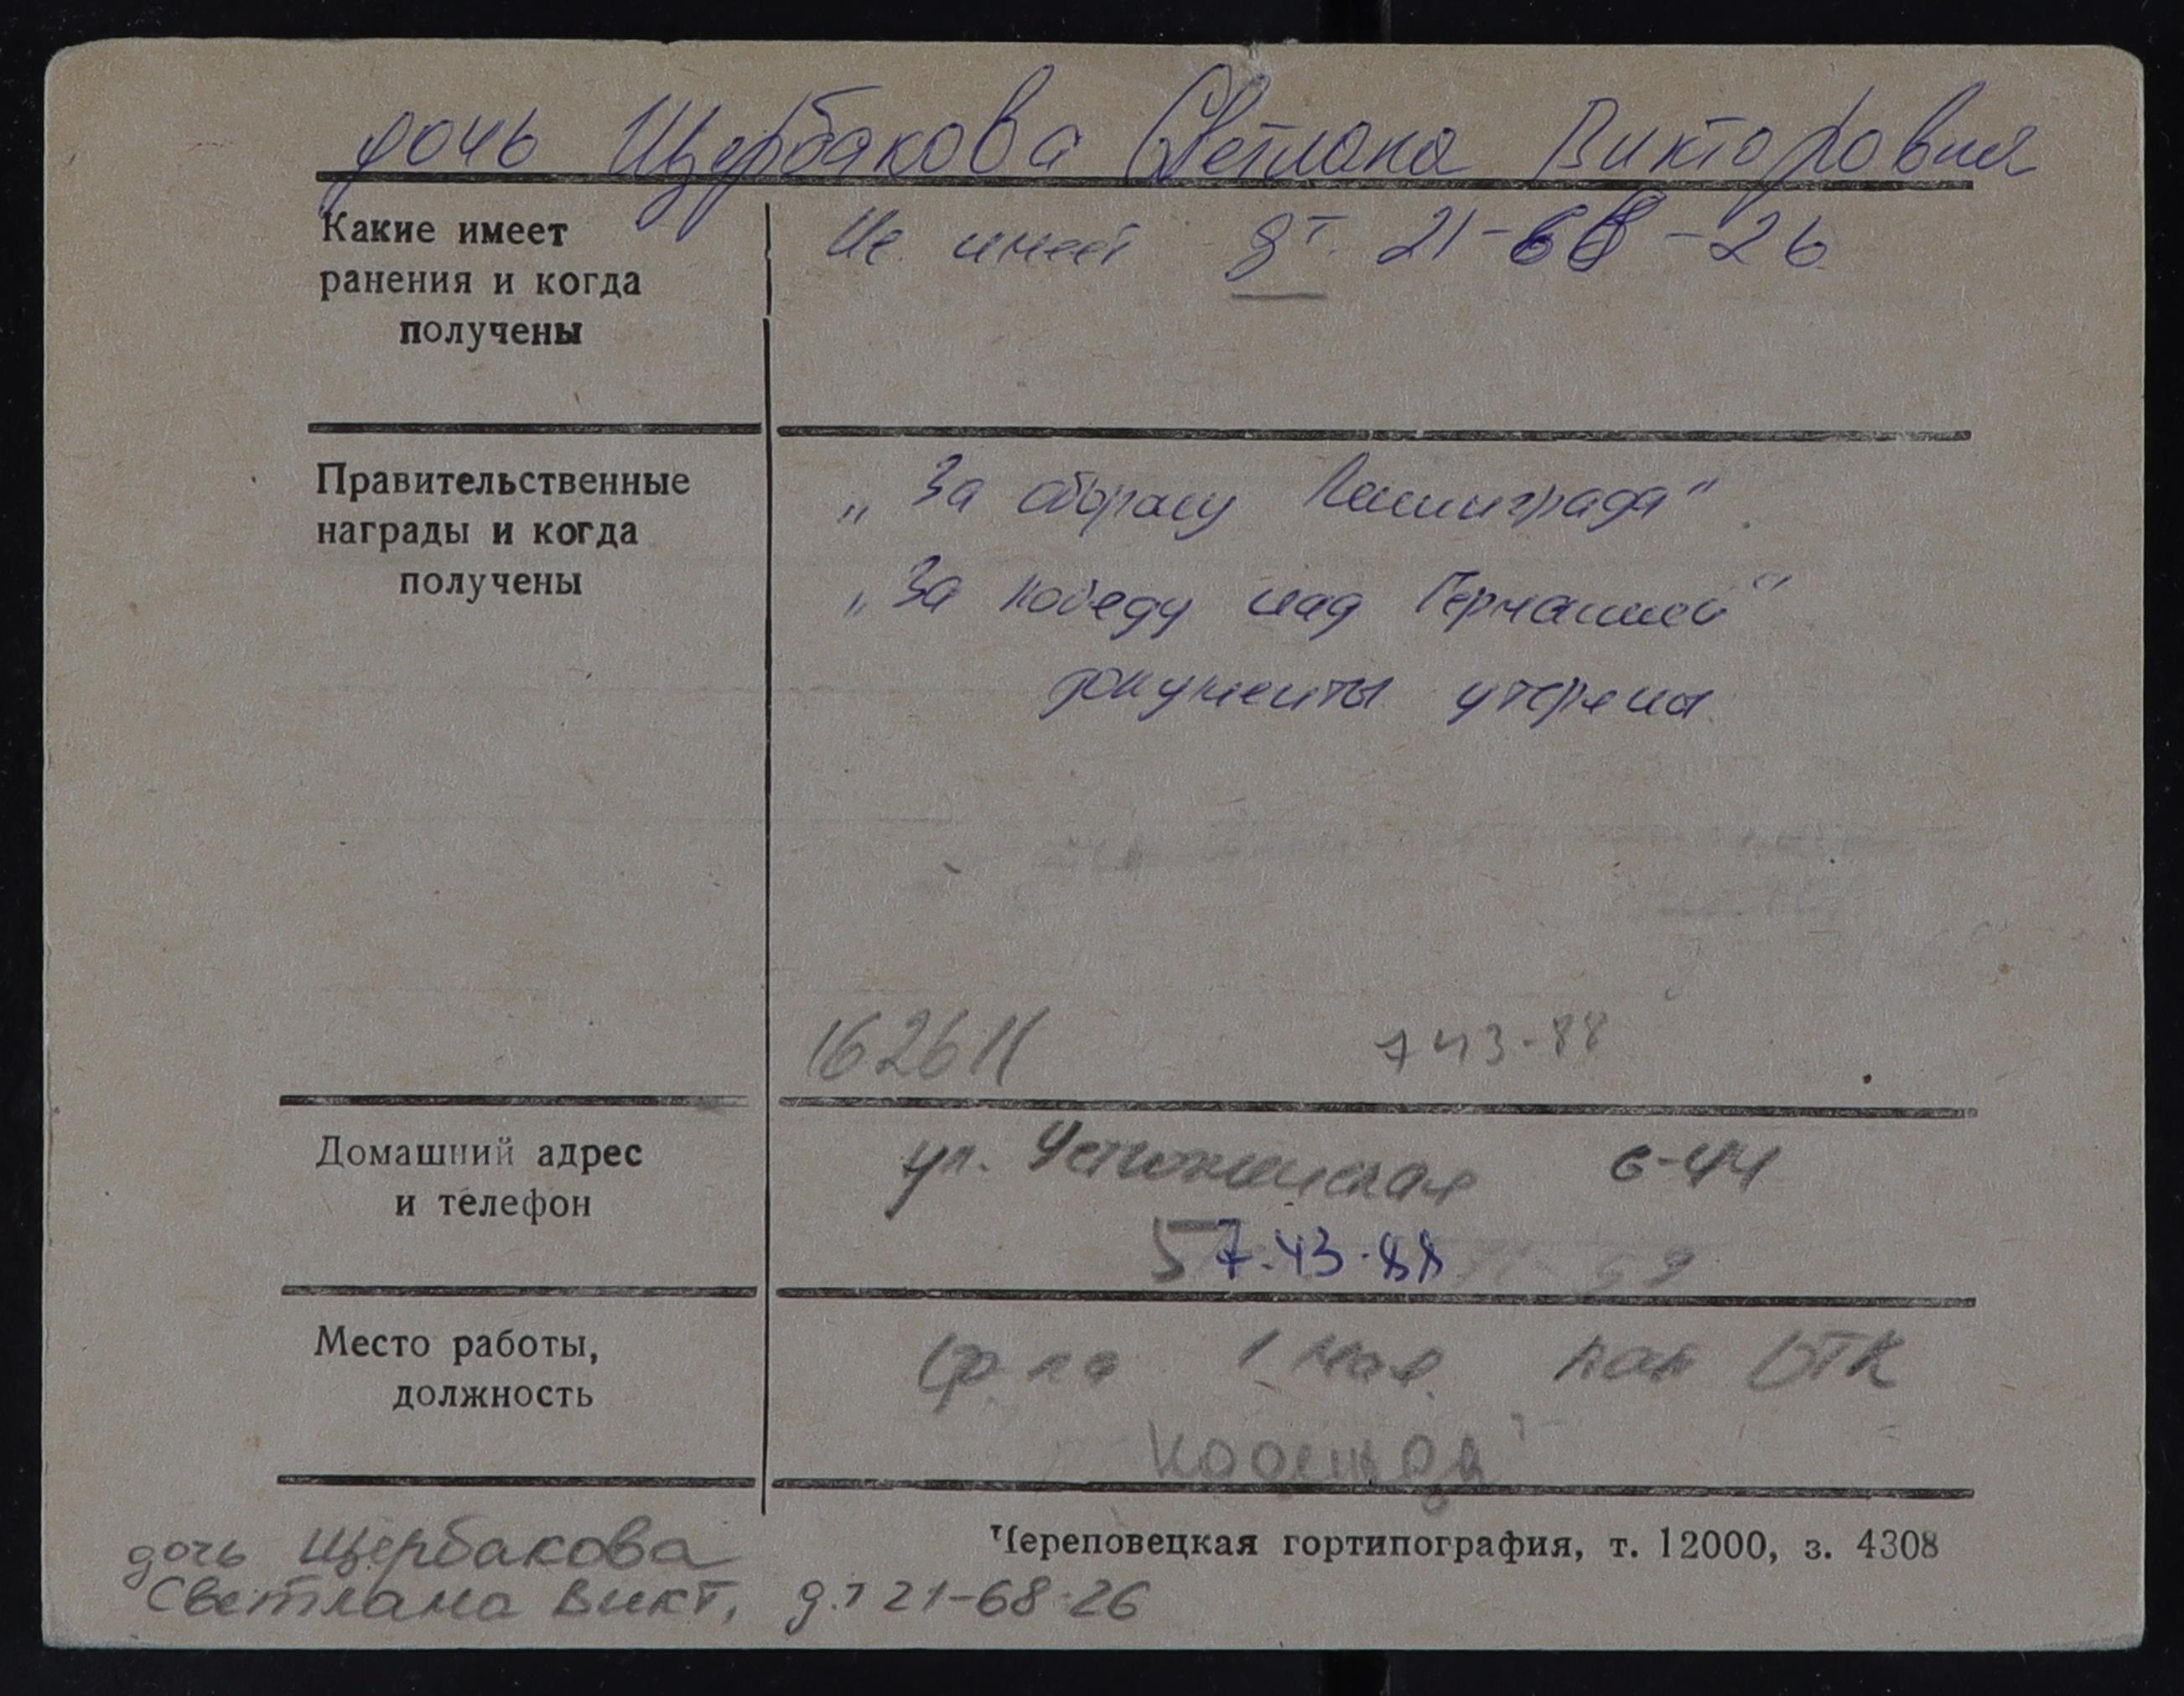 дочь Щербакова Светлана Викторовна
Какие имеет
ранения и когда
получены
Не имеет дт. 21-68-26
Правительственные
награды и когда
получены
„За оборону Ленинграда“
„За победу над Германией“
документы утеряны
162611 743-88
Домашний адрес
и телефон
ул. Устюженская 6-44
57-43-88
Место работы,
должность
ф-ка 1 мая ОТК
Надежда
Череповецкая гортипография, т. 12000, з. 4308
дочь Щербакова
Светлана Викт, д.т 21-68-26